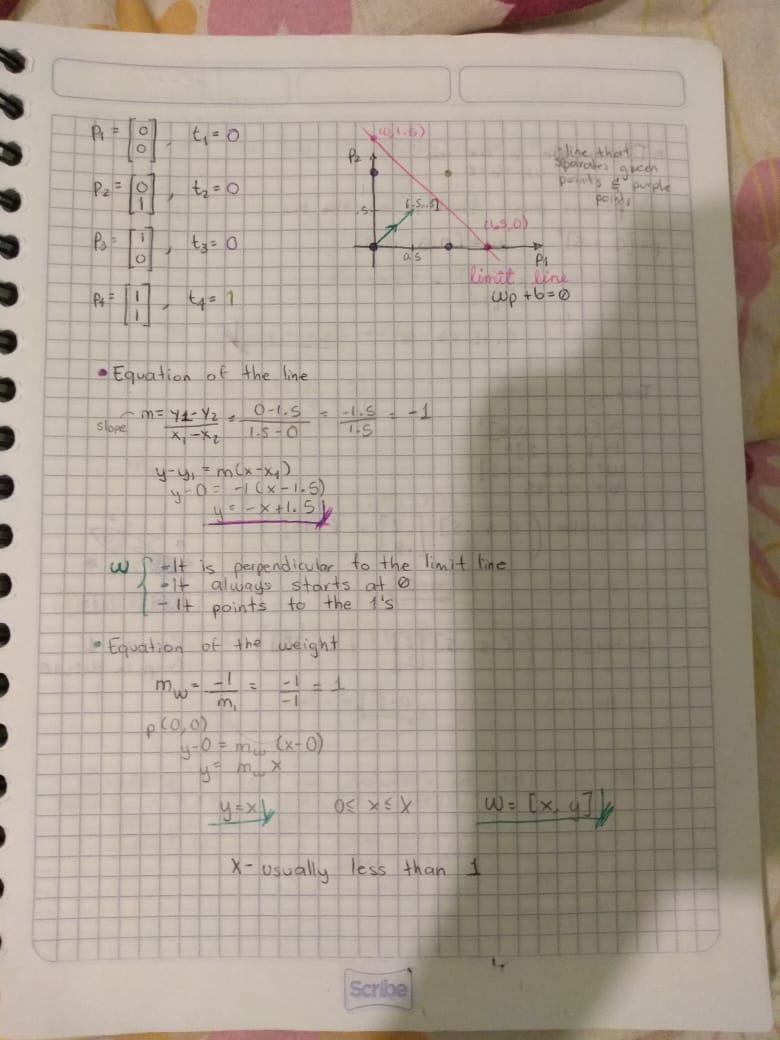 P₁ = [0 0], t₁ = 0
P₂ = [0 1], t₂ = 0
P₃ = [1 0], t₃ = 0
P₄ = [1 1], t₄ = 1
(0,1.5)
P₂
.5
[.5,.5]
(1.5,0)
0.5
P₁
limit line
wp + b = 0
line that
separates green
points & purple
points
• Equation of the line
slope
m = y1-y₂/x₁-x₂ = 0-1.5/1.5-0 = -1.5/1.5 = -1
y-y₁ = m(x-x₁)
y-0 = -1(x-1.5)
y = -x+1.5
w { -It is perpendicular to the limit line
-It always starts at 0
-It points to the 1's
• Equation of the weight
m_w = -1/m₁ = -1/-1 = 1
p(0,0)
y-0 = m_w (x-0)
y = m_w x
y=x 0≤ x ≤ X w = [x, y]
X- usually less than 1
Scribe